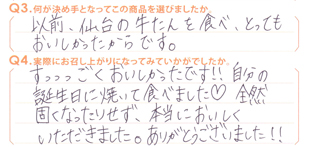 Q3.何が決め手となってこの商品を選びましたか。
以前、仙台の牛たんを食べ、とっても
おいしかったからです。
Q4.実際にお召し上がりになってみていかがでしたか。
すっっっごくおいしかったです!!自分の
誕生日に焼いて食べました♡ 全然
固くなったりせず、本当においしく
いただきました。ありがとうございました!!